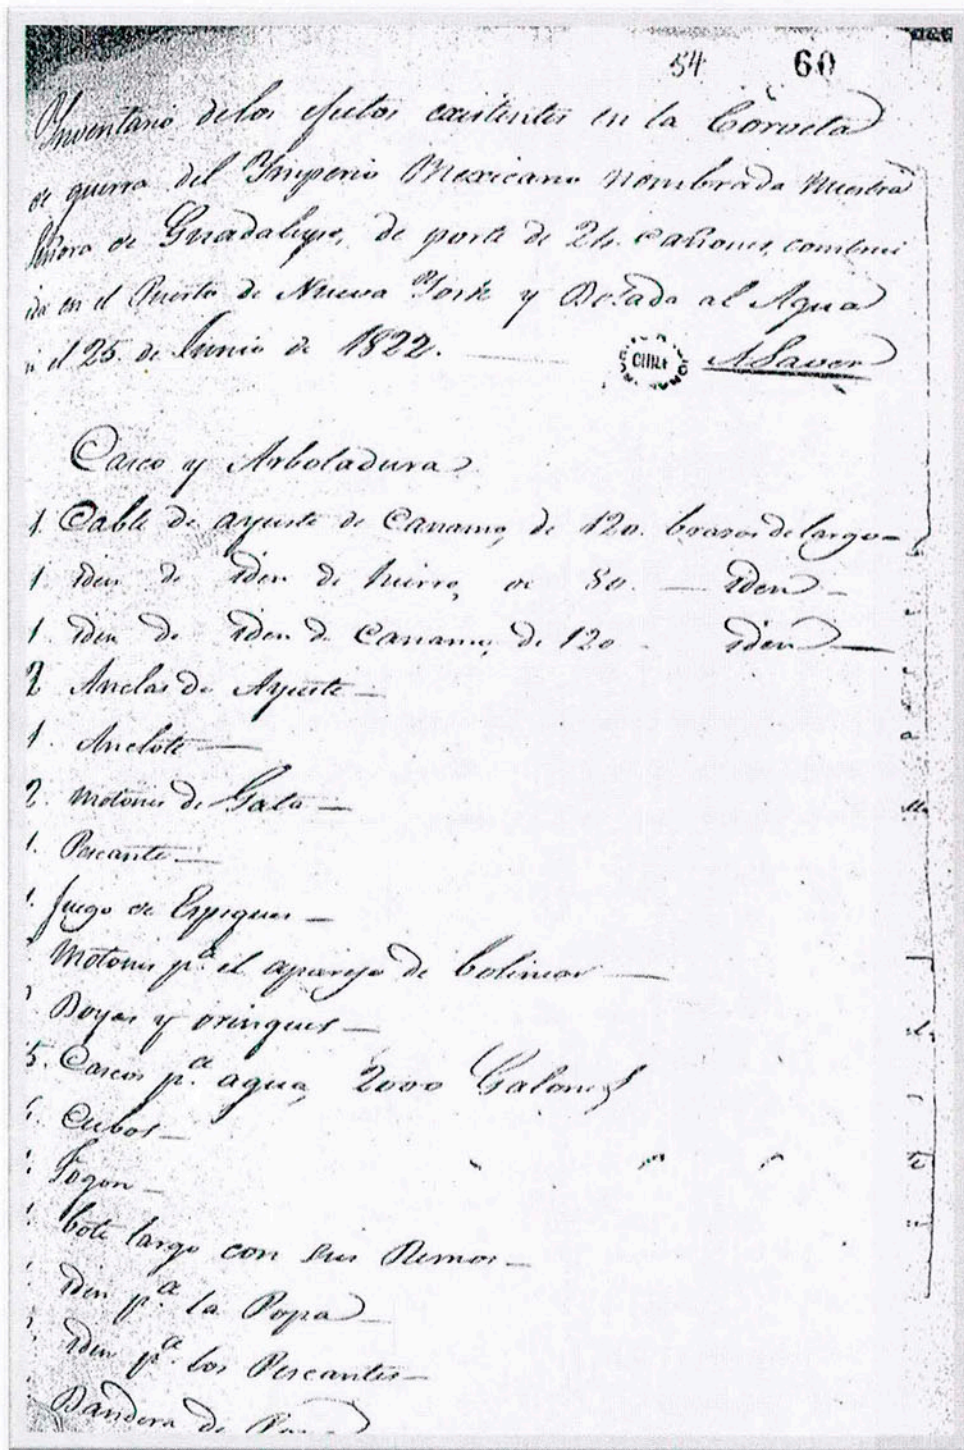 54 60
Inventario de los efectos existentes en la Corveta
de guerra del Ymperio Mexicano nombrada Nuestra
Señora de Guadalupe, de porte de 24. cañones, construi
da en el Puerto de Nueva York y Botada al Agua
el 25. de Junio de 1822. CHILE A Saver
Casco y Arboladura
1. Cable de ayuste de Canamo, de 120. brazas de largo
1. iden de iden de hierro, de 80. iden
1. iden de iden de Canamo, de 120 iden
2 Anclas de Ayuste
1. Anclote
2. Motones de Gata
1. Pescante
1. Juego de Espeques
Motones pª. el aparejo de bolinear
Boyas y orinques
5. Cascos pª. agua, 2000 Galones
Cubos
Fogon
bote largo con sus Remos
iden pª. la Popa
iden pª. los Pescantes
Bandera de